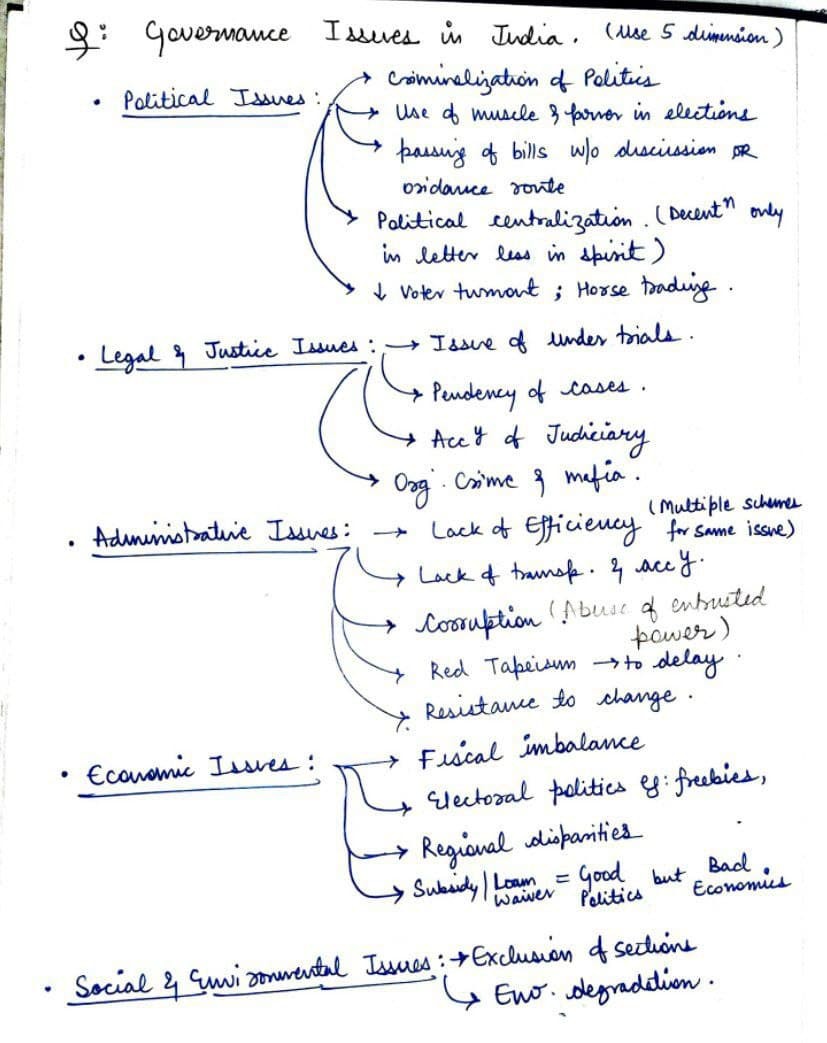 Q: Governance Issues in India. (Use 5 dimension)
• Political Issues: → Criminalization of Politics
→ Use of muscle & power in elections
→ passing of bills w/o discussion OR
oridance route
→ Political centralization. (Decentⁿ only
in letter less in spirit)
→ ↓ Voter turnout ; Horse trading.
• Legal & Justice Issues: → Issue of under trials.
→ Pendency of cases.
→ Accy of Judiciary
→ Org. Crime & mafia.
• Administrative Issues: → Lack of Efficiency (Multiple schemes
for same issue)
→ Lack of transp. & accy.
→ Corruption (Abuse of entrusted
power)
→ Red Tapeism → to delay.
→ Resistance to change.
• Economic Issues: → Fiscal imbalance
→ Electoral politics eg: freebies,
→ Regional disparities
→ Subsidy | Loan Waiver = Good Politics but Bad Economics
• Social & Environmental Issues: → Exclusion of sections
→ Env. degradation.